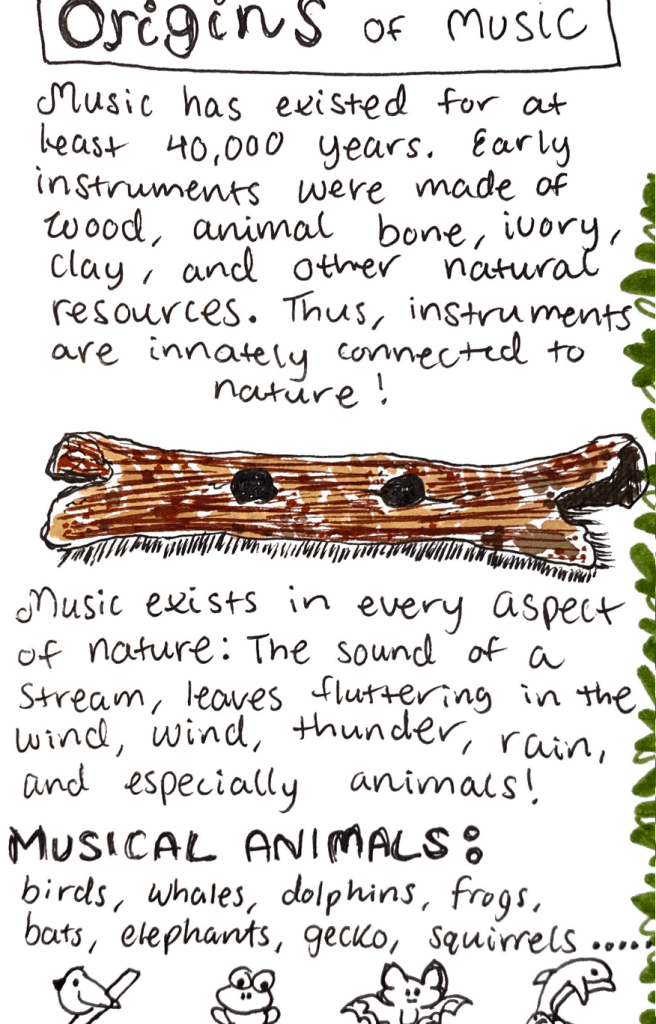 Origins of Music
Music has existed for at
least 40,000 years. Early
instruments were made of
wood, animal bone, ivory,
clay, and other natural
resources. Thus, instruments
are innately connected to
nature!
Music exists in every aspect
of nature: The sound of a
stream, leaves fluttering in the
wind, wind, thunder, rain,
and especially animals!
MUSICAL ANIMALS:
birds, whales, dolphins, frogs,
bats, elephants, gecko, squirrels .....